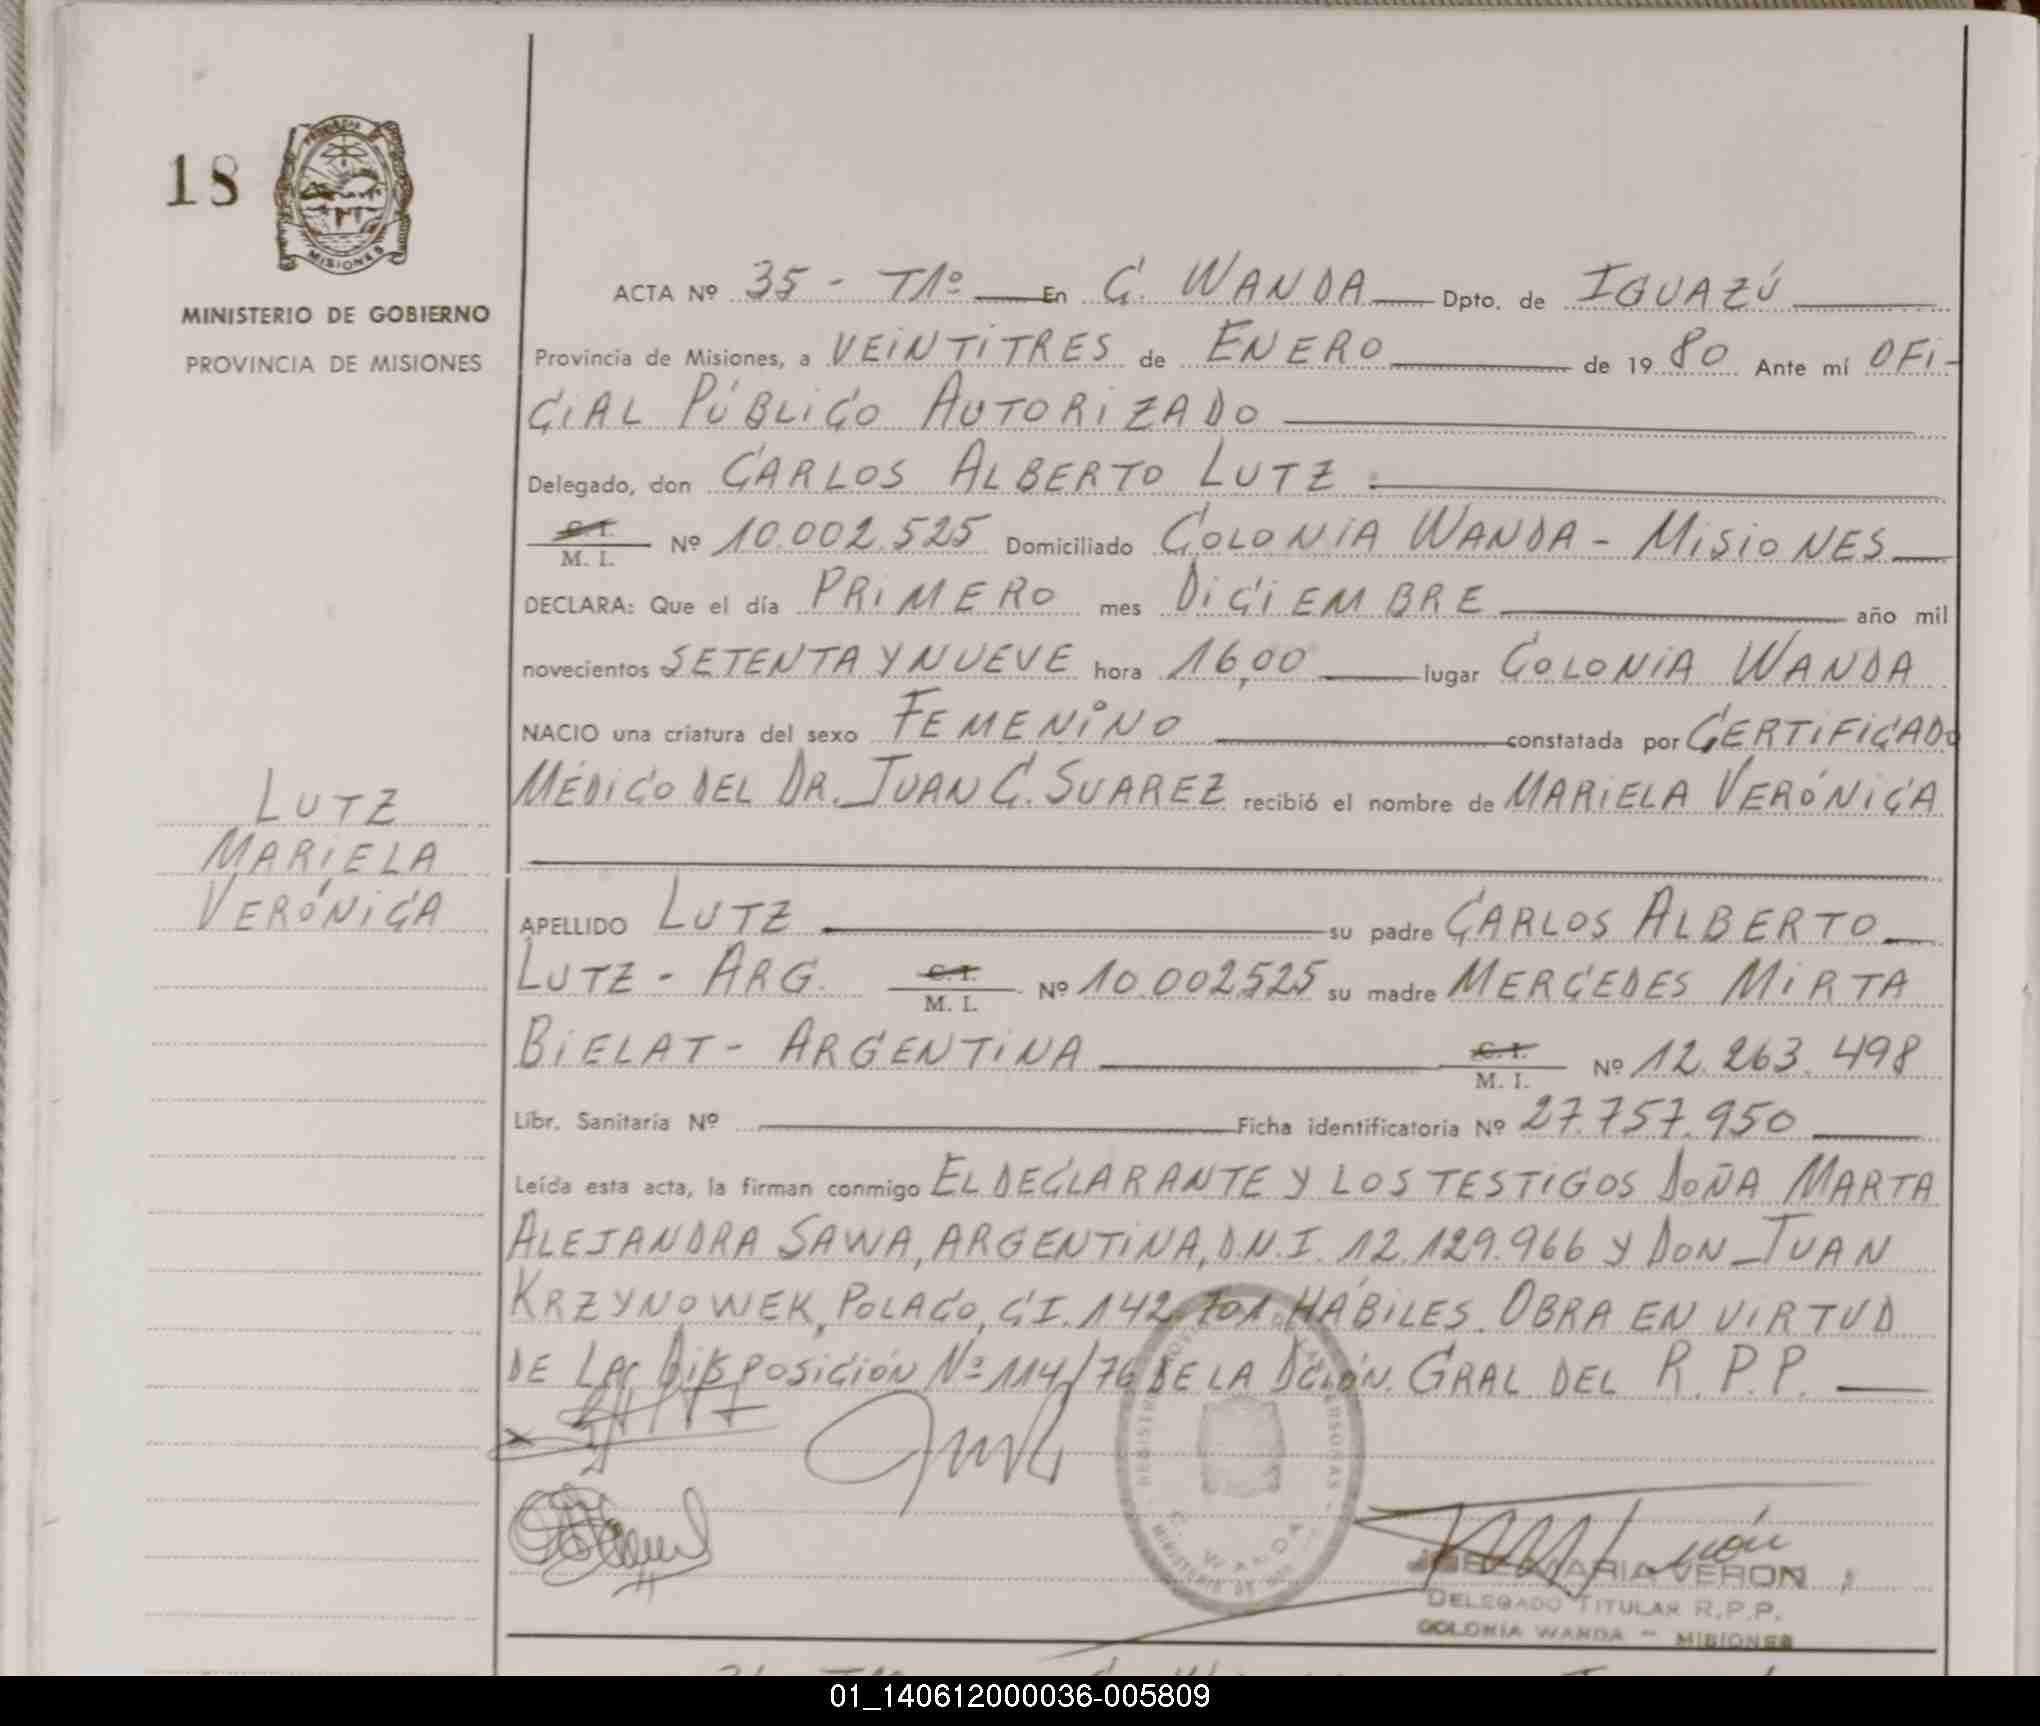 18
PROVINCIA DE
MISIONES
MINISTERIO DE GOBIERNO
PROVINCIA DE MISIONES
ACTA Nº 35 - T1º En C. WANDA Dpto. de IGUAZÚ
Provincia de Misiones, a VEINTITRES de ENERO de 19 80 Ante mí OFI-
CIAL PÚBLICO AUTORIZADO
Delegado, don CARLOS ALBERTO LUTZ
C. I.
M. I. Nº 10.002.525 Domiciliado COLONIA WANDA - MISIONES
DECLARA: Que el día PRIMERO mes DICIEMBRE año mil
novecientos SETENTA Y NUEVE hora 16,00 lugar COLONIA WANDA
NACIO una criatura del sexo FEMENINO constatada por CERTIFICADO
MÉDICO DEL DR. JUAN C. SUAREZ recibió el nombre de MARIELA VERÓNICA
LUTZ
MARIELA
VERÓNICA
APELLIDO LUTZ su padre CARLOS ALBERTO
LUTZ - ARG. C. I.
M. I. Nº 10.002.525 su madre MERCEDES MIRTA
BIELAT - ARGENTINA C. I.
M. I. Nº 12.263.498
Libr. Sanitaria Nº Ficha identificatoria Nº 27.757.950
Leída esta acta, la firman conmigo EL DECLARANTE Y LOS TESTIGOS DOÑA MARTA
ALEJANDRA SAWA, ARGENTINA, D.N.I. 12.129.966 Y DON JUAN
KRZYNOWEK, POLACO, C.I. 142.701. HÁBILES. OBRA EN VIRTUD
DE LA DISPOSICIÓN Nº 114/76 DE LA DCIÓN. GRAL DEL R. P. P.
C. WANDA
JOSE MARIA VERON
DELEGADO TITULAR R.P.P.
COLONIA WANDA - MISIONES
01_140612000036-005809